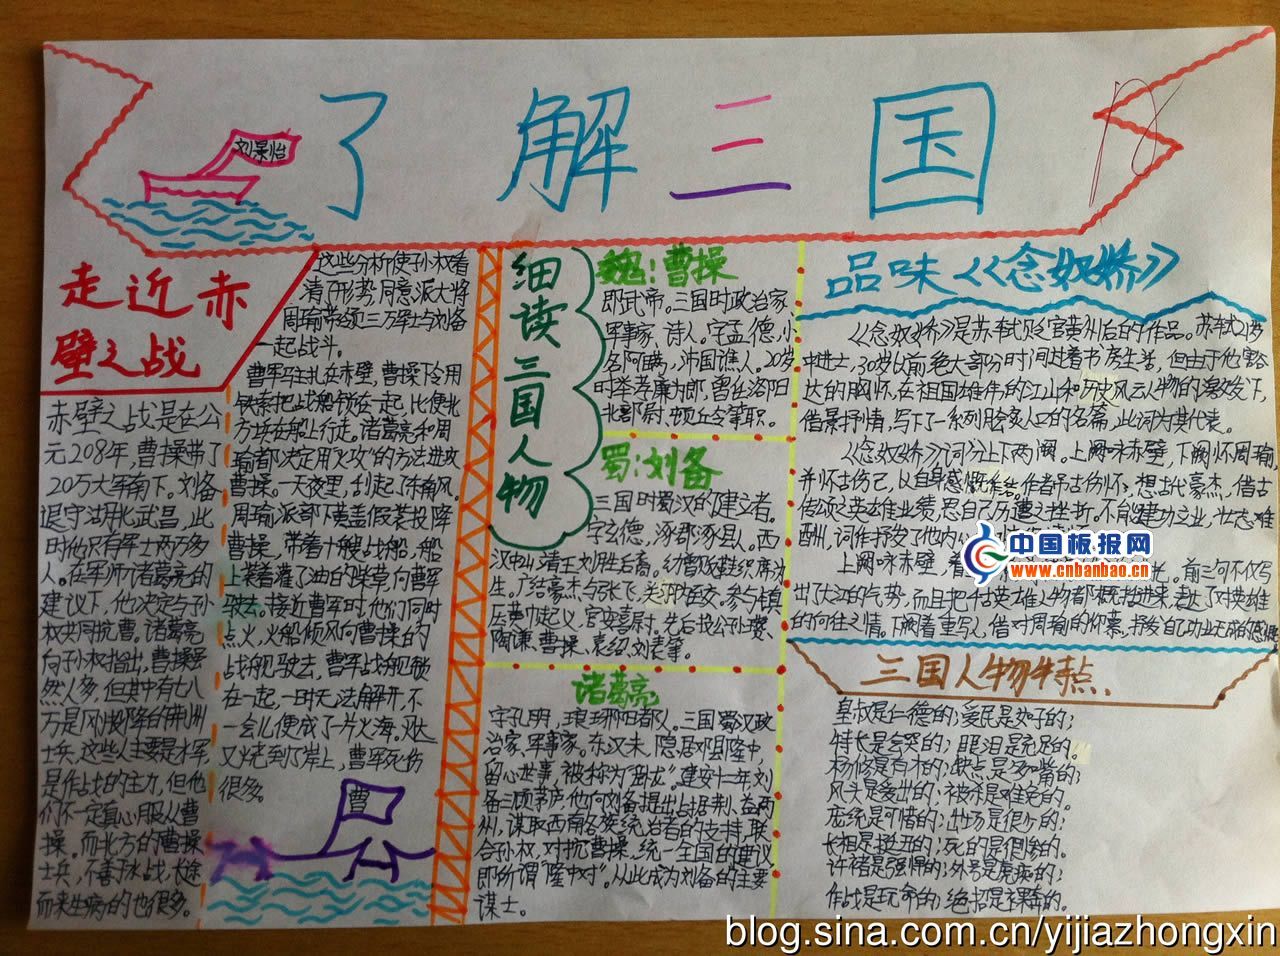 了解三国
刘景怡
走近赤
壁之战
赤壁之战是在公
元208年,曹操带了
20万大军南下。刘备
退守湖北武昌,此
时他只有军士两万多
人。在军师诸葛亮的
建议下,他决定与孙
权共同抗曹。诸葛亮
向孙权指出,曹操虽
然人多,但其中有七八
万是刚投降的荆州
士兵,这些人主要是水军,
是作战的主力,但他
们不一定真心服从曹
操。而北方的曹操
士兵,不善于水战,长途
而来生病的也很多。
这些分析使孙权看
清了形势,同意派大将
周瑜带领三万军士与刘备
一起战斗。
曹军驻扎在赤壁,曹操下令用
铁索把战船锁在一起,以便北
方兵在船上行走,诸葛亮和周
瑜都决定用“火攻”的方法进攻
曹操。一天夜里,刮起了东南风。
周瑜派部下黄盖假装投降
曹操,带着十艘战船,船
上装着灌了油的柴草,向曹军
驶去。接近曹军时,他们同时
点火,火船顺风向曹操的
战船驶去,曹军战船锁
在一起,一时无法解开,不
一会儿便成了一片火海。火
又烧到了岸上,曹军死伤
很多。
曹
细读三国人物
魏:曹操
即武帝。三国时政治家、
军事家、诗人。字孟德,小
名阿瞒,沛国谯人。20岁
时举孝廉为郎,曾任洛阳
北部尉、顿丘令等职。
蜀:刘备
三国时蜀汉的建立者。
字玄德,涿郡涿县人。西
汉中山靖王刘胜后裔。幼曾贩鞋织席为
生。广结豪杰,与张飞、关羽
参与镇
压黄巾起义,官安喜尉。先后投公孙瓒、
陶谦、曹操、袁绍、刘表等。
诸葛亮
字孔明,琅琊阳都人。三国蜀汉政
治家、军事家。东汉末,隐居邓县隆中,
留心世事,被称为“卧龙”。建安十二年刘
备三顾茅庐,他向刘备提出占据荆、益两
州,谋取西南各族统治者的支持,联
合孙权,对抗曹操,统一全国的建议,
即所谓“隆中对”。从此成为刘备的主要
谋士。
品味《念奴娇》
《念奴娇》是苏轼贬官黄州后的作品。苏轼21岁
中进士,30岁以前绝大部分时间过着书房生活,但由于他豁
达的胸怀,在祖国雄伟的江山和历史风云人物的激发下,
借景抒情,写下了一系列脍炙人口的名篇,此词为其代表。
《念奴娇》词分上下两阕。上阕咏赤壁,下阕怀周瑜,
并怀古伤己,以自身感慨作结。作者吊古伤怀,想古代豪杰,借古
传颂之英雄业绩,思自己历遭之挫折。不能建功立业,壮志难
酬,词作抒发了他内心
上阕咏赤壁,
前三句不仅写
出了大江的气势,而且把千古英雄人物都概括进来,表达了对英雄
的向往之情。下阕着重写人,借对周瑜的仰慕,抒发自己功业无成的感慨
三国人物特点
皇叔是仁德的;爱民是如子的;
特长是会哭的;眼泪是充足的。
杨修是有才的;缺点是多嘴的;
风头是爱出的;被杀是难免的。
庞统是可惜的;出场是很少的;
长相是挺丑的;死的是很惨的。
许褚是强悍的;外号是虎痴的;
作战是玩命的;绝招是裸奔的。
中国板报网
www.cnbanbao.cn
blog.sina.com.cn/yijiazhongxin